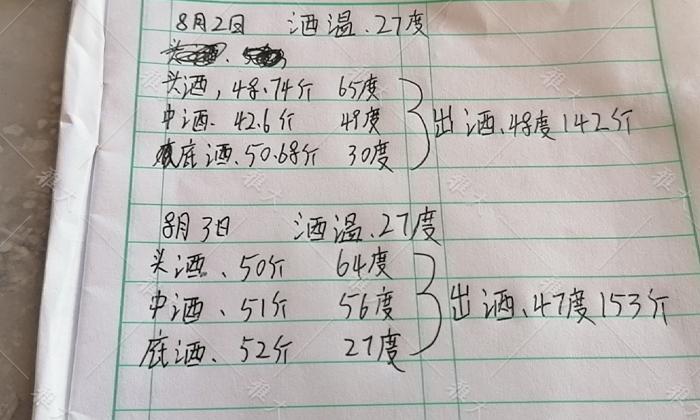 8月2日 酒温.27度
头酒,48.74斤 65度
中酒.42.6斤 49度
底酒.50.68斤 30度
出酒.48度142斤
8月3日 酒温.27度
头酒、50斤 64度
中酒、51斤 56度
底酒、52斤 27度
出酒、47度153斤